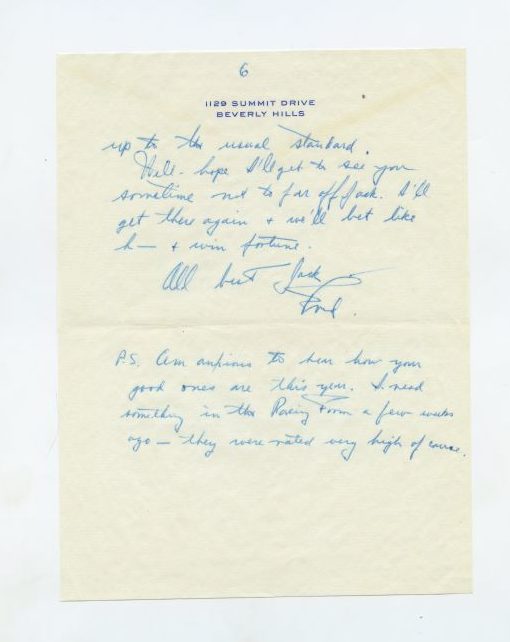 6
1129 SUMMIT DRIVE
BEVERLY HILLS
up to the usual standard.
Well - hope I'll get to see you
sometime not to far off Jack. I'll
get there again + we'll bet like
h— + win fortune.
All best Jack
P.S. Am anxious to hear how your
good ones are this year. I read
something in the Racing Form a few weeks
ago — they were rated very high of course.